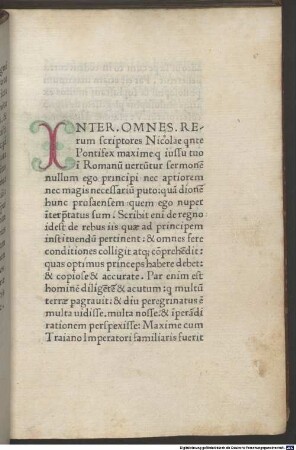 INTER.OMNES.RE-
rum scriptores Nicolae qnte
Pontifex maxime q iussu tuo
i Romanū uertūtur sermonē
nullum ego principi nec aptiorem
nec magis necessariū puto: quā dionē
hunc prosaensem quem ego nuper
iterp̄tatus sum. Scribit eni de regno
idest de rebus iis quæ ad principem
instituendū pertinent: & omnes fere
conditiones colligit atq; cōprehēdit:
quas optimus princeps habere debet:
& copiose & accurate. Par enim est
hominē diligētē & acutum: q multū
terræ pagrauit: & diu peregrinatus ē
multa uidisse. multa nosse: & iperādi
rationem perspexisse: Maxime cum
Traiano Imperatori familiaris fuerit